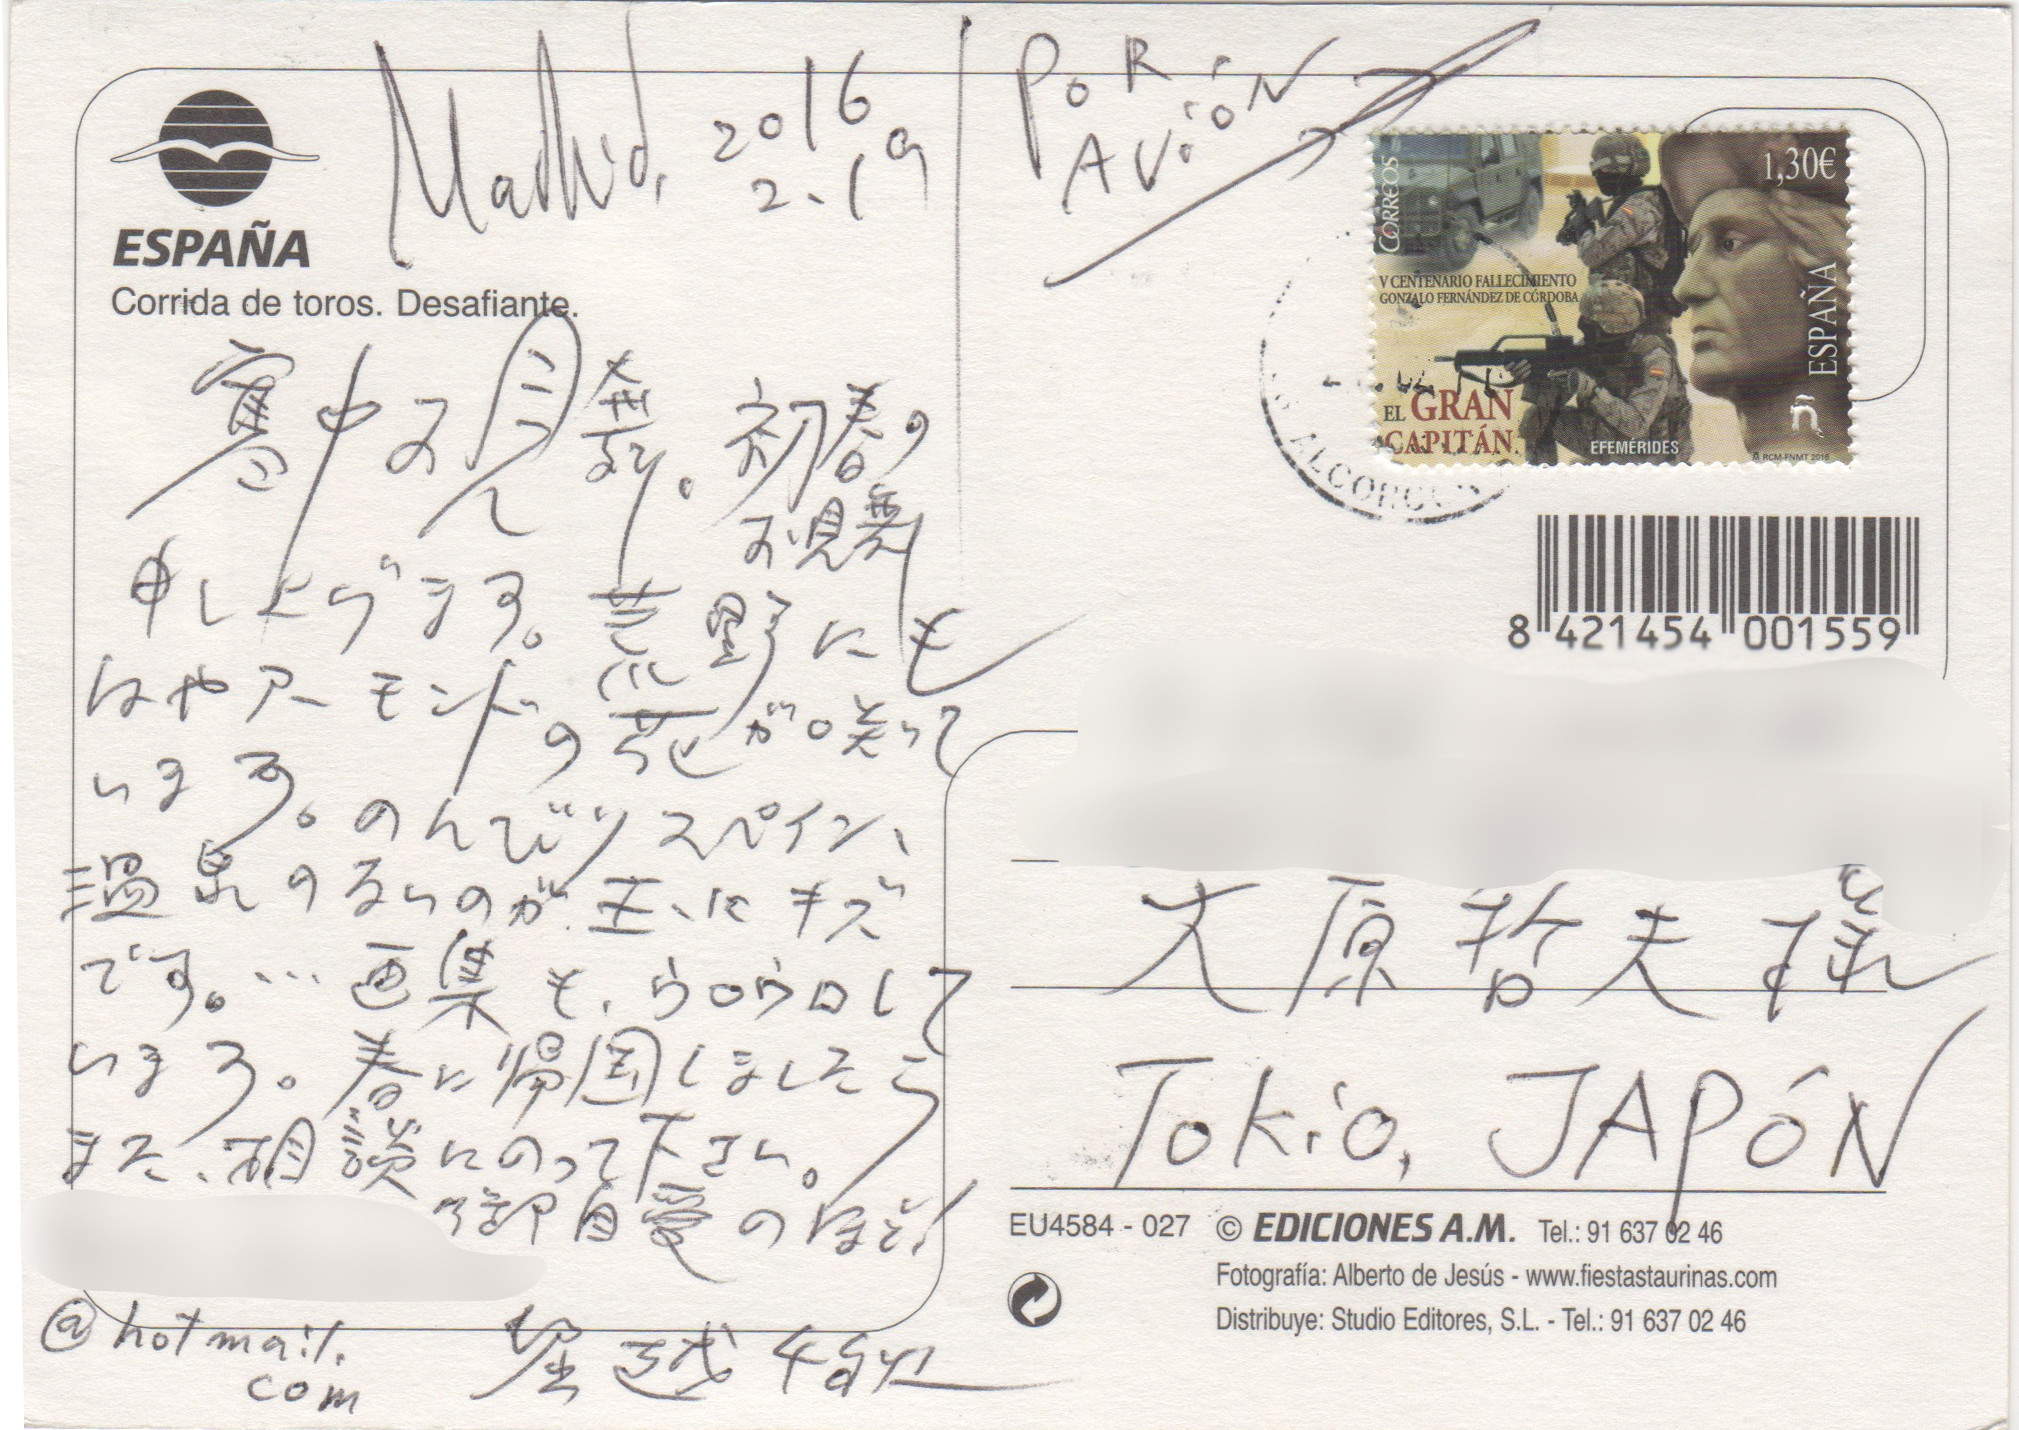 Madrid, 2016
2.19
POR
AVióN
ESPAÑA
Corrida de toros. Desafiante.
寒中お見舞。初春の
お見舞
申し上げます。荒野にも
はやアーモンドの花が咲いて
います。のんびりスペイン、
温泉のないのが玉にキズ
です。…画集も、ウロウロして
います。春に帰国しましたら
また、相談にのって下さい。
御自愛のほど!
@hotmail.
com
堀越千秋
CORREOS
1,30€
V CENTENARIO FALLECIMIENTO
GONZALO FERNÁNDEZ DE CÓRDOBA
EL GRAN
CAPITÁN
EFEMÉRIDES
RCM-FNMT 2016
ESPAÑA
ñ
8 421454 001559
大原哲夫様
Tokio, JAPÓN
EU4584 - 027 © EDICIONES A.M. Tel.: 91 637 02 46
Fotografía: Alberto de Jesús - www.fiestastaurinas.com
Distribuye: Studio Editores, S.L. - Tel.: 91 637 02 46